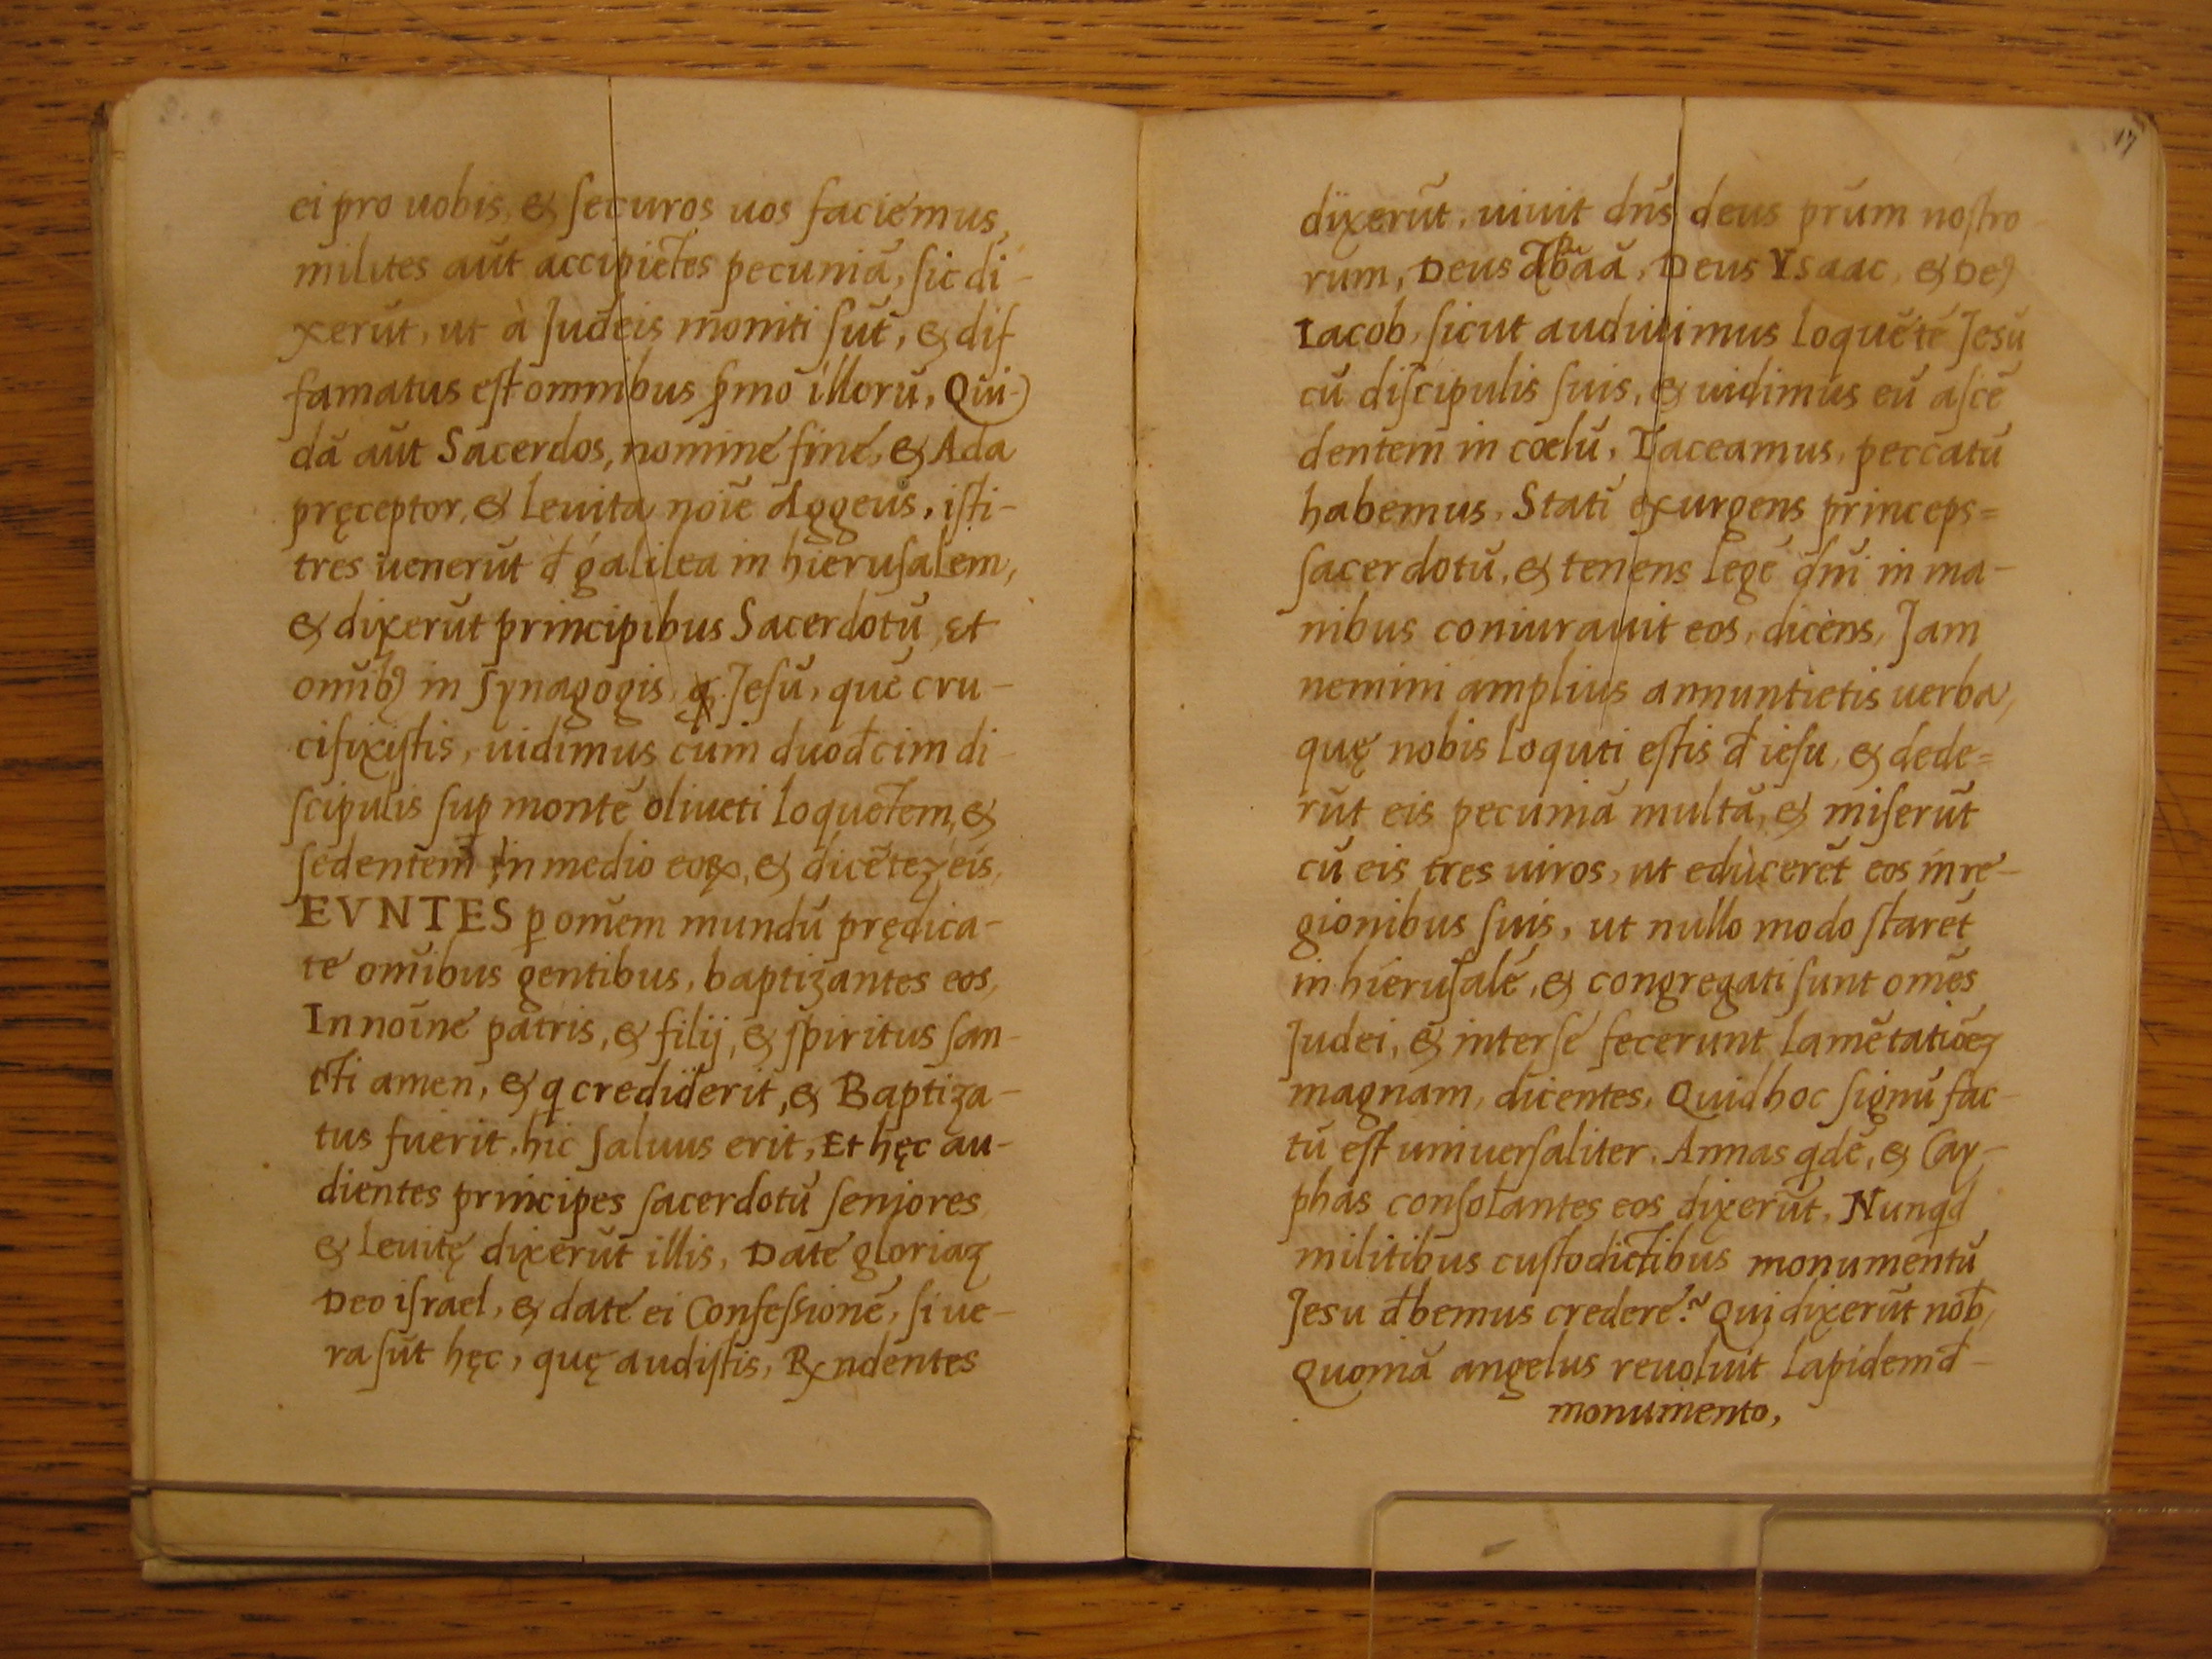 ei pro uobis, & ſecuros uos faciemus,
milites aūt accipiētes pecuniā, ſic di-
xerūt, ut à Judeis moniti ſūt, & dif
famatus eſt omnibus ſermo illorū, Qui-
dā aūt Sacerdos, nomine finé, & Ada
pręceptor, & leuita noīe Aggeus, iſti-
tres uenerūt đ galilea in hieruſalem,
& dixerūt principibus Sacerdotū, Et
omībꝰ in ſynagogis, Jeſū, quē cru-
cifixiſtis, uidimus cum duođcim di-
ſcipulis ſuꝑ montē oliueti loquētem, &
ſedentem in medio eoꝝ, & dicēteꝫ eis,
EVNTES ꝑ omēm mundū prędica-
te omībus gentibus, baptizantes eos,
In noīne patris, & filij, & ſpiritus ſan-
cti amen, & q crediderit, & Baptiza-
tus fuerit, hic ſaluus erit, Et hęc au-
dientes principes ſacerdotū ſeniores
& leuitę dixerūt illis, Date gloriaꝫ
Deo iſrael, & date ei Confeſſionē, ſi ue-
ra ſūt hęc, quę audiſtis, Rx ndentes
17
dixerūt, uiuit dn̄s deus prūm noſtro-
rum, Deus Abꝛaā, Deus Ysaac, & Deꝰ
Iacob, ſicut audiuimus loquētē Jesū
cū diſcipulis ſuis, & uidimus eū aſcē
dentem in cœlū, Taceamus, peccatū
habemus, Statī exurgens princeps=
ſacerdotū, & tenens legē dn̄i in ma-
nibus coniurauit eos, dicens, Jam
nemini amplius annuntietis uerba,
quę nobis loquti eſtis đ ieſu, & dede=
rūt eis pecuniā multā, & miſerūt
cū eis tres uiros, ut educerēt eos in re-
gionibus ſuis, ut nullo modo ſtarēt
in hieruſalē, & congregati ſunt omēs
Judei, & inter ſe fecerunt lamētatiōeꝫ
magnam, dicentes, Quid hoc ſignū fac-
tū eſt uniuerſaliter, Annas qdē, & Cay-
phas conſolantes eos dixerūt, Nunqd
militibus cuſtodiētibus monumentū
Jesu đbemus credere? Qui dixerūt nob,
Quoniā angelus reuoluit lapidem đ-
monumento,